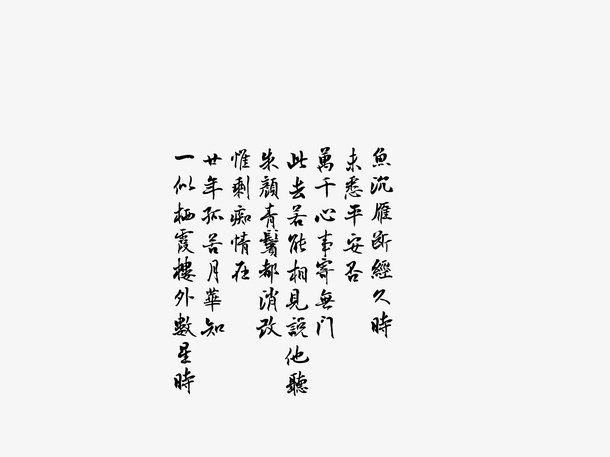 魚沉雁斷經久時
未悉平安否
萬千心事寄無門
此去若能相見説他聽
朱顏青鬢都消改
惟剩痴情在
廿年孤苦月華知
一似栖霞樓外數星時